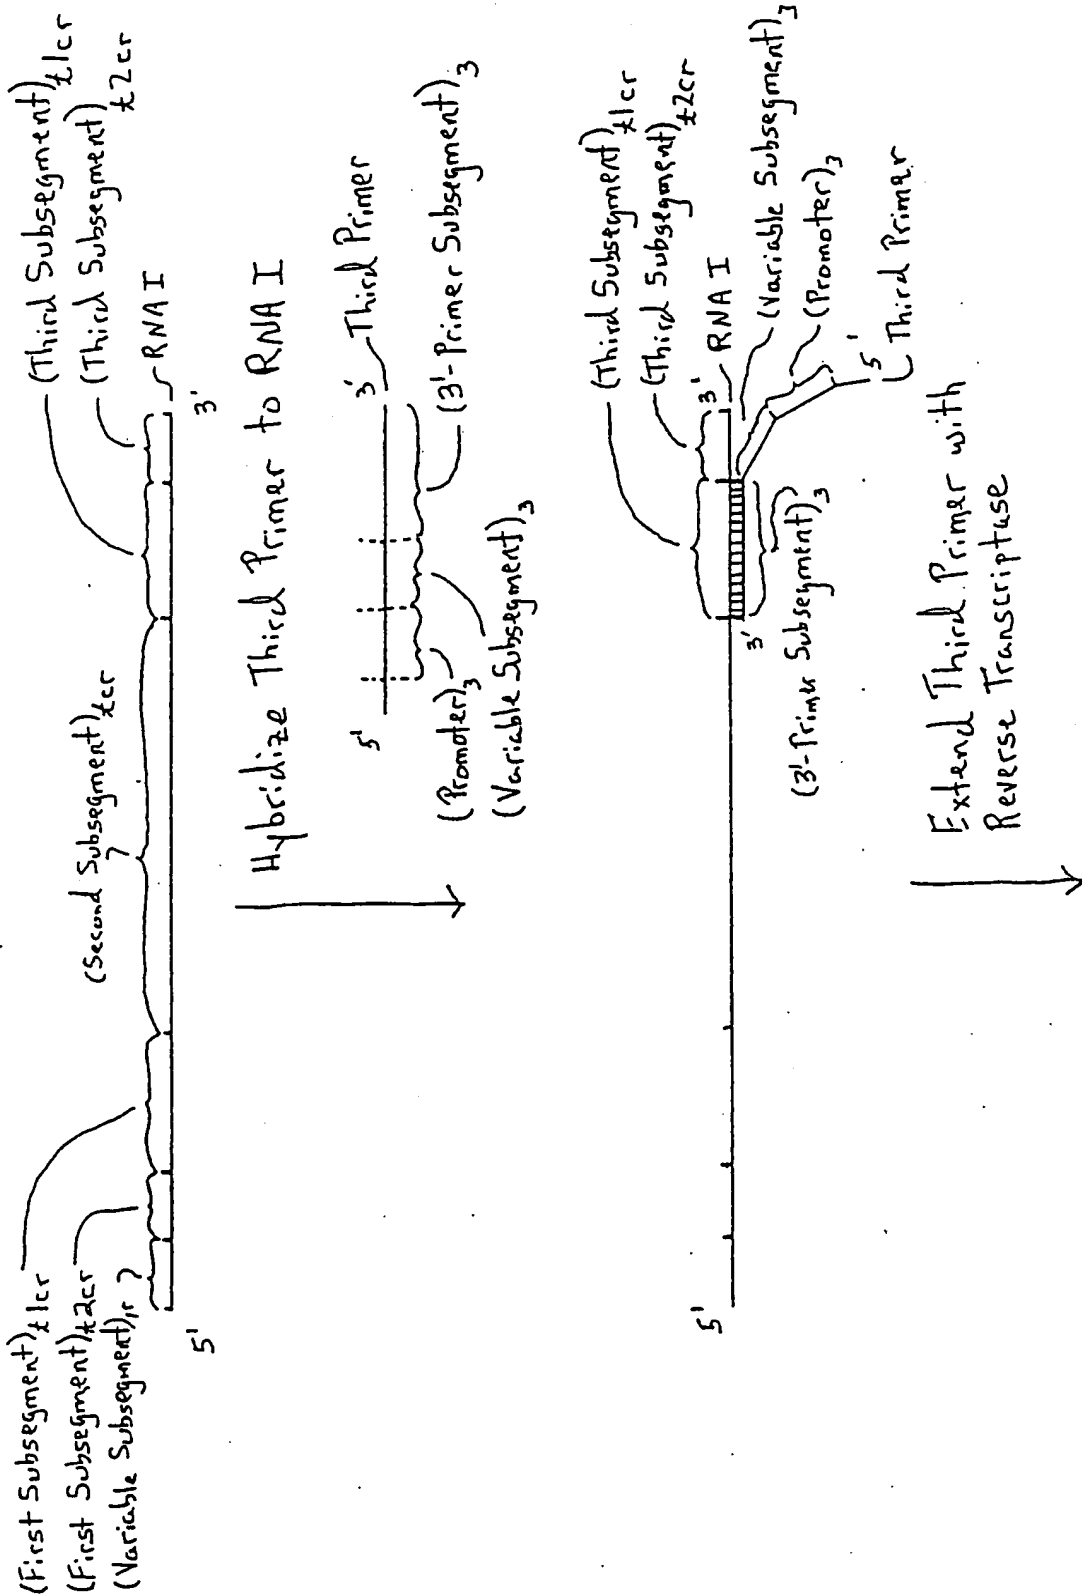 (First Subsegment)t1cr
(First Subsegment)t2cr
(Variable Subsegment)1r
(Second Subsegment)tcr
(Third Subsegment)t1cr
(Third Subsegment)t2cr
RNA I
5'
3'
Hybridize Third Primer to RNA I
5'
3'
Third Primer
(Promoter)3
(Variable Subsegment)3
(3'-Primer Subsegment)3
(Third Subsegment)t1cr
(Third Subsegment)t2cr
RNA I
5'
3'
3'
(3'-Primer Subsegment)3
(Variable Subsegment)3
(Promoter)3
5'
Third Primer
Extend Third Primer with
Reverse Transcriptase